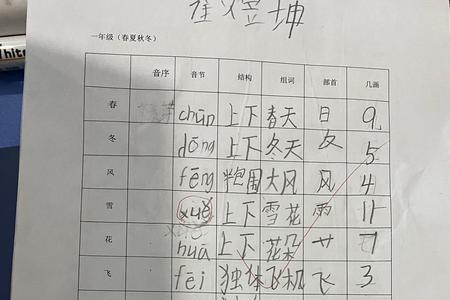 坤
White
一年级（春夏秋冬）
音序 音节 结构 组词 部首 几画
春 chūn 上下 春天 日 9
冬 dōng 上下 冬天 夂 5
风 fēng 半包围 大风 风 4
雪 xuě 上下 雪花 雨 11
花 huā 上下 花朵 艹 7
飞 fēi 独体 飞机 飞 3